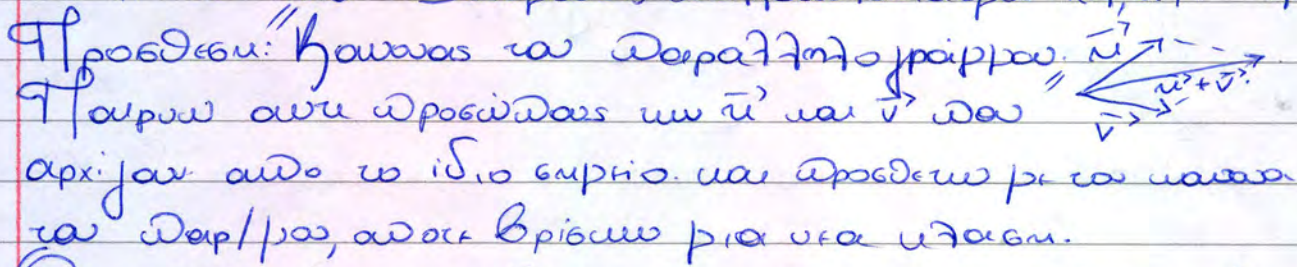 Πρόσθεση: "Κανονας του παραλληλογράμμου"
Παιρνω αντι προσώπους των u⃗ και v⃗ που
αρχιζουν απο το ίδιο σημείο και προσθετω με τον κανονα
του παρ/μου, οποτε βρίσκω μια νεα κλαση.
u⃗
u⃗+v⃗
v⃗